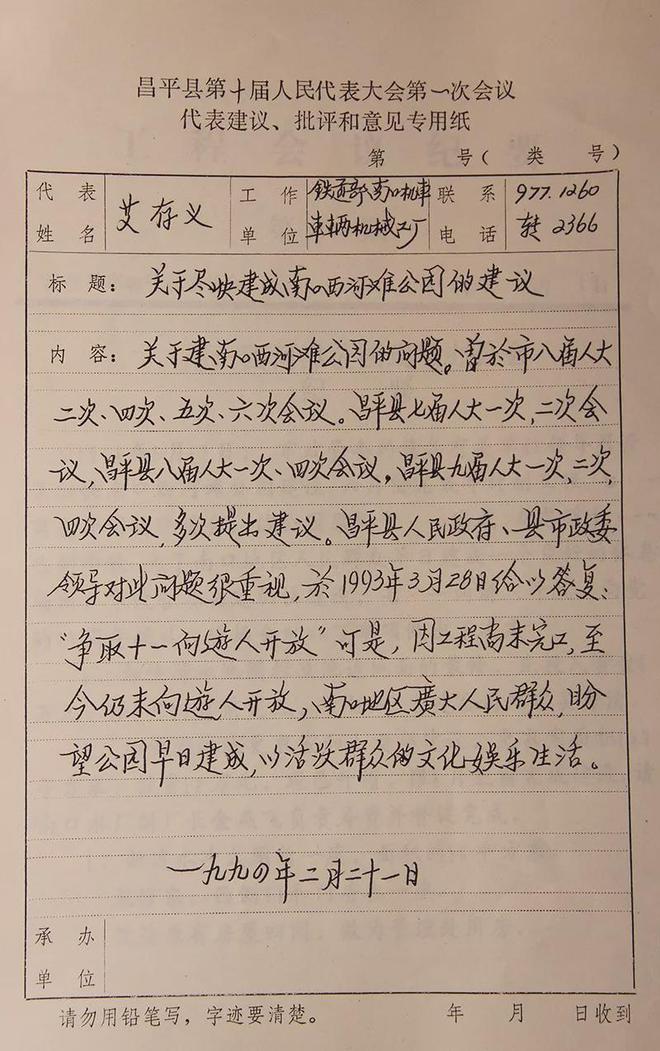 昌平县第十届人民代表大会第一次会议
代表建议、批评和意见专用纸
第 号( 类 号)
代表姓名 艾存义 工作单位 铁道部南口机車車辆机械工厂 联系电话 977.1260 转 2366
标题: 关于尽快建成南口西河滩公园的建议
内容: 关于建南口西河滩公园的问题。曾於市八届人大
二次、四次、五次、六次会议。昌平县七届人大一次,二次会
议,昌平县八届人大一次、四次会议,昌平县九届人大一次,二次,
四次会议,多次提出建议。昌平县人民政府、县市政委
领导对此问题很重视,於1993年3月28日给以答复:
“争取十一向遊人开放”可是,因工程尚未完工,至
今仍未向遊人开放,南口地区廣大人民群众,盼
望公园早日建成,以活跃群众的文化娱乐生活。
一九九四年二月二十一日
承办单位
请勿用铅笔写,字迹要清楚。 年 月 日收到